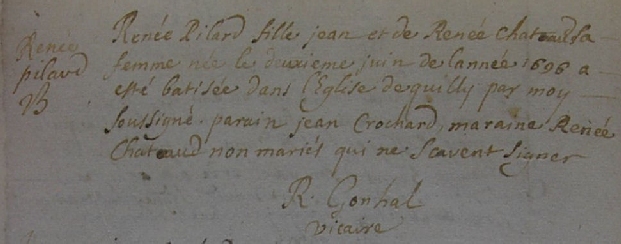 Renée
pilard
B
Renée Pilard fille jean et de Renée Chataud sa
femme née le deuxieme juin de lannée 1696 a
esté batisée dans l'Eglise de quilly par moy
soussigné. parain jean Crochard, maraine Renée
Chataud non mariés qui ne scavent signer
R. Gonhal
vicaire